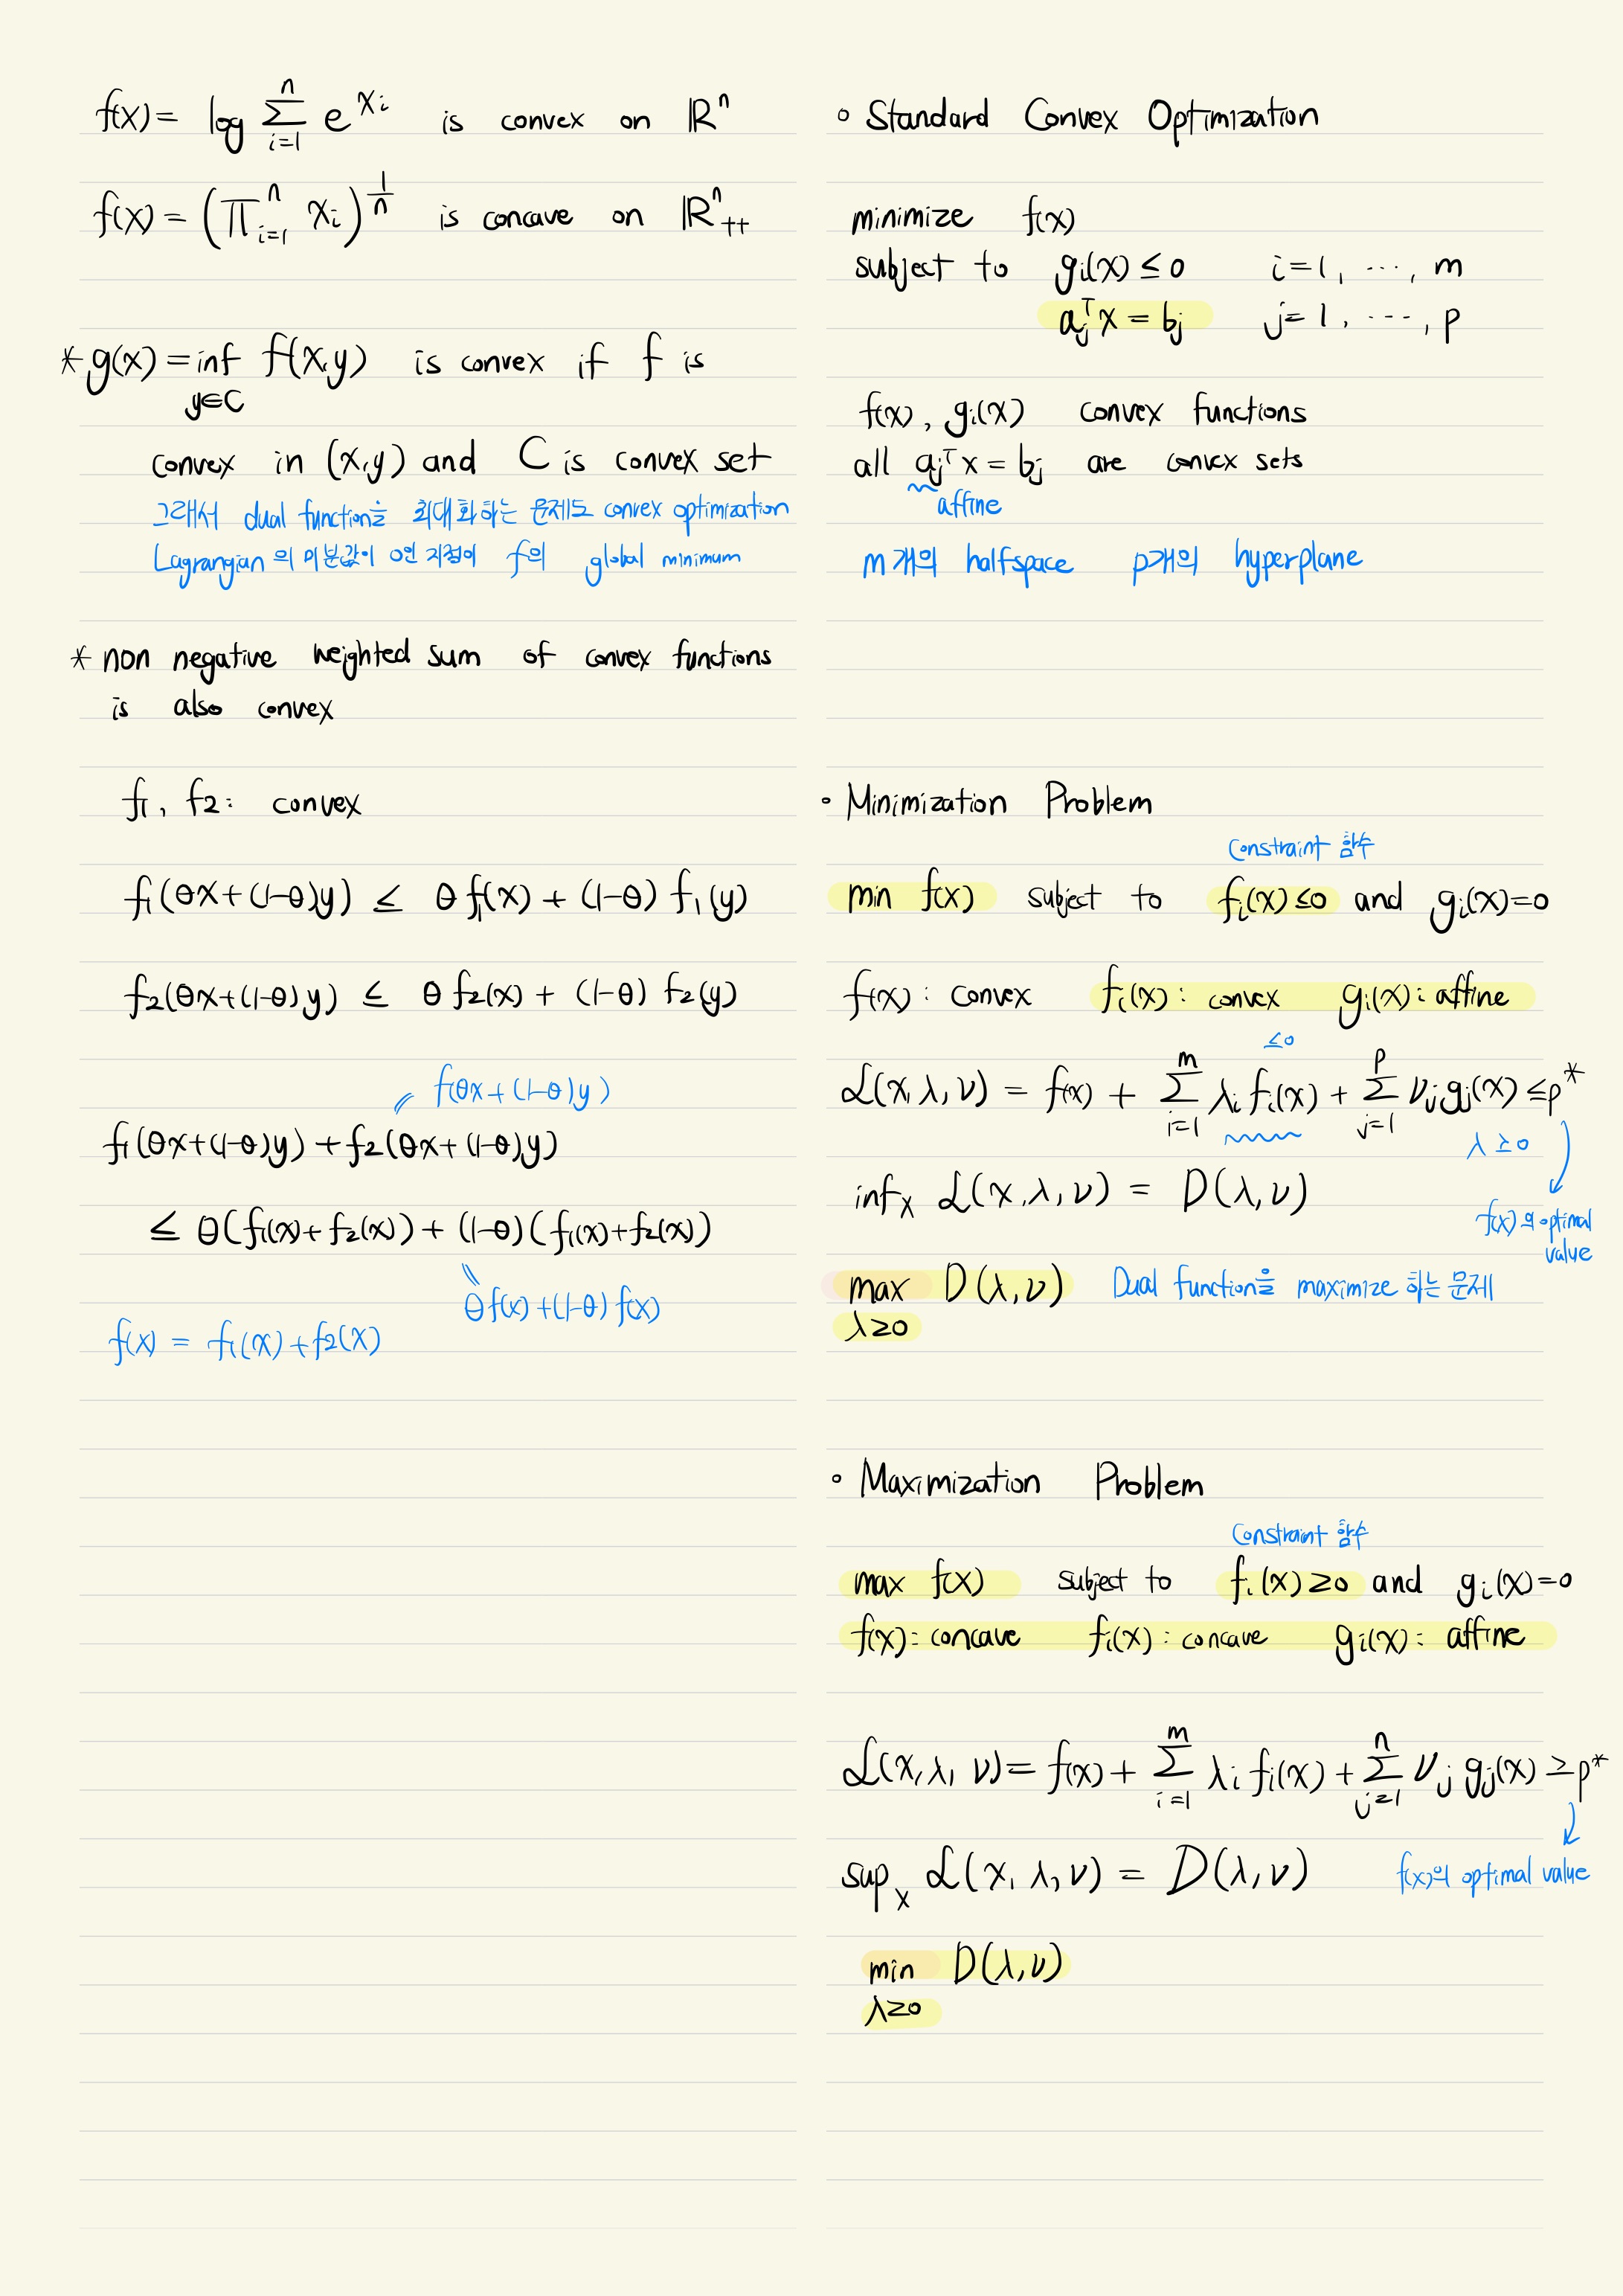 f(x) = log Σ_{i=1}^{n} e^{x_i} is convex on ℝ^n
f(x) = (∏_{i=1}^{n} x_i)^{1/n} is concave on ℝ^n_{++}
* g(x) = inf_{y∈C} f(x,y) is convex if f is
convex in (x,y) and C is convex set
그래서 dual function을 최대화하는 문제도 convex optimization
Lagrangian의 미분값이 0인 지점이 f의 global minimum
* non negative weighted sum of convex functions
is also convex
f1, f2 : convex
f1(θx+(1-θ)y) ≤ θ f1(x) + (1-θ) f1(y)
f2(θx+(1-θ)y) ≤ θ f2(x) + (1-θ) f2(y)
// f(θx+(1-θ)y)
f1(θx+(1-θ)y) + f2(θx+(1-θ)y)
≤ θ(f1(x)+f2(x)) + (1-θ)(f1(x)+f2(x))
\\ θf(x)+(1-θ)f(x)
f(x) = f1(x)+f2(x)
∘ Standard Convex Optimization
minimize f(x)
subject to g_i(x) ≤ 0 i=1, ..., m
a_j^T x = b_j j=1, ..., p
f(x), g_i(x) convex functions
all a_j^T x = b_j are convex sets
affine
m개의 halfspace p개의 hyperplane
∘ Minimization Problem
Constraint 함수
min f(x) subject to f_i(x) ≤0 and g_i(x)=0
f(x) : convex f_i(x) : convex g_i(x) : affine
≤0
L(x,λ,ν) = f(x) + Σ_{i=1}^{m} λ_i f_i(x) + Σ_{j=1}^{p} ν_j g_j(x) ≤ p*
λ ≥0
inf_x L(x,λ,ν) = D(λ,ν)
f(x)의 optimal
value
max_{λ≥0} D(λ,ν) Dual function을 maximize 하는 문제
∘ Maximization Problem
Constraint 함수
max f(x) subject to f_i(x) ≥0 and g_i(x)=0
f(x) : concave f_i(x) : concave g_i(x) : affine
L(x,λ,ν) = f(x) + Σ_{i=1}^{m} λ_i f_i(x) + Σ_{j=1}^{n} ν_j g_j(x) ≥ p*
sup_x L(x,λ,ν) = D(λ,ν) f(x)의 optimal value
min_{λ≥0} D(λ,ν)